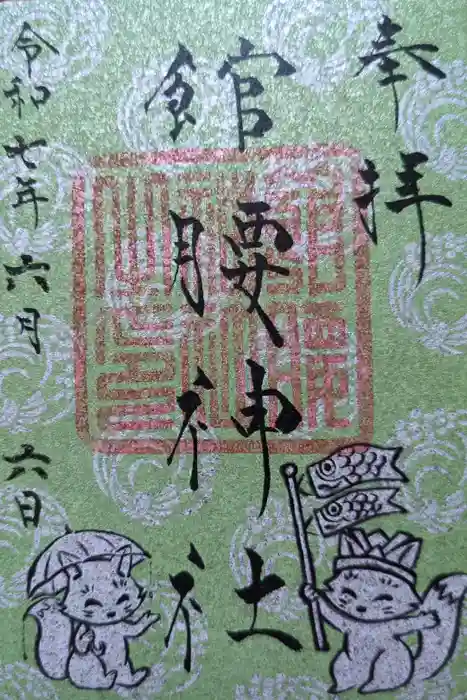 奉拝
館腰神社
令和七年 六月 六日